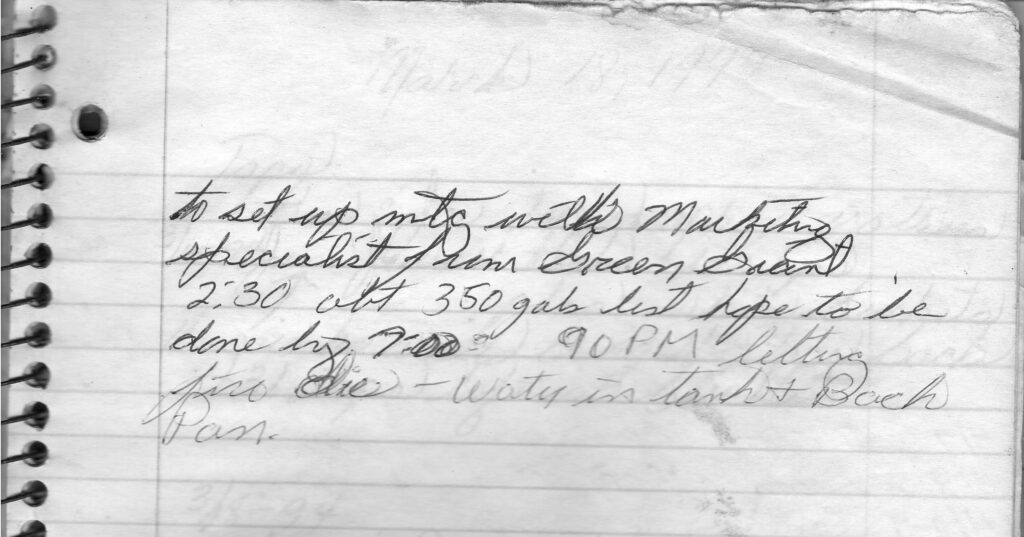 to set up mtg with Marketing
specialist from Green Giant
2:30 abt 350 gals left hope to be
done by 7:00? 90 PM letting
fire die - Water in tank + Back
Pan.